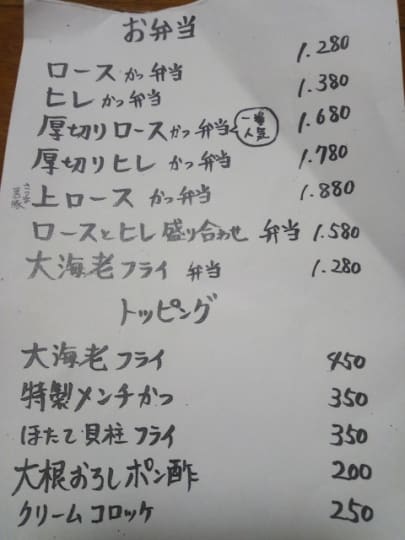 お弁当
ロースかつ弁当 1.280
ヒレかつ弁当 1.380
厚切りロースかつ弁当 一番人気 1.680
厚切りヒレかつ弁当 1.780
上ロースかつ弁当 1.880
ロースとヒレ盛り合わせ 弁当 1.580
大海老フライ 弁当 1.280
トッピング
大海老フライ 450
特製メンチかつ 350
ほたて貝柱フライ 350
大根おろしポン酢 200
クリームコロッケ 250